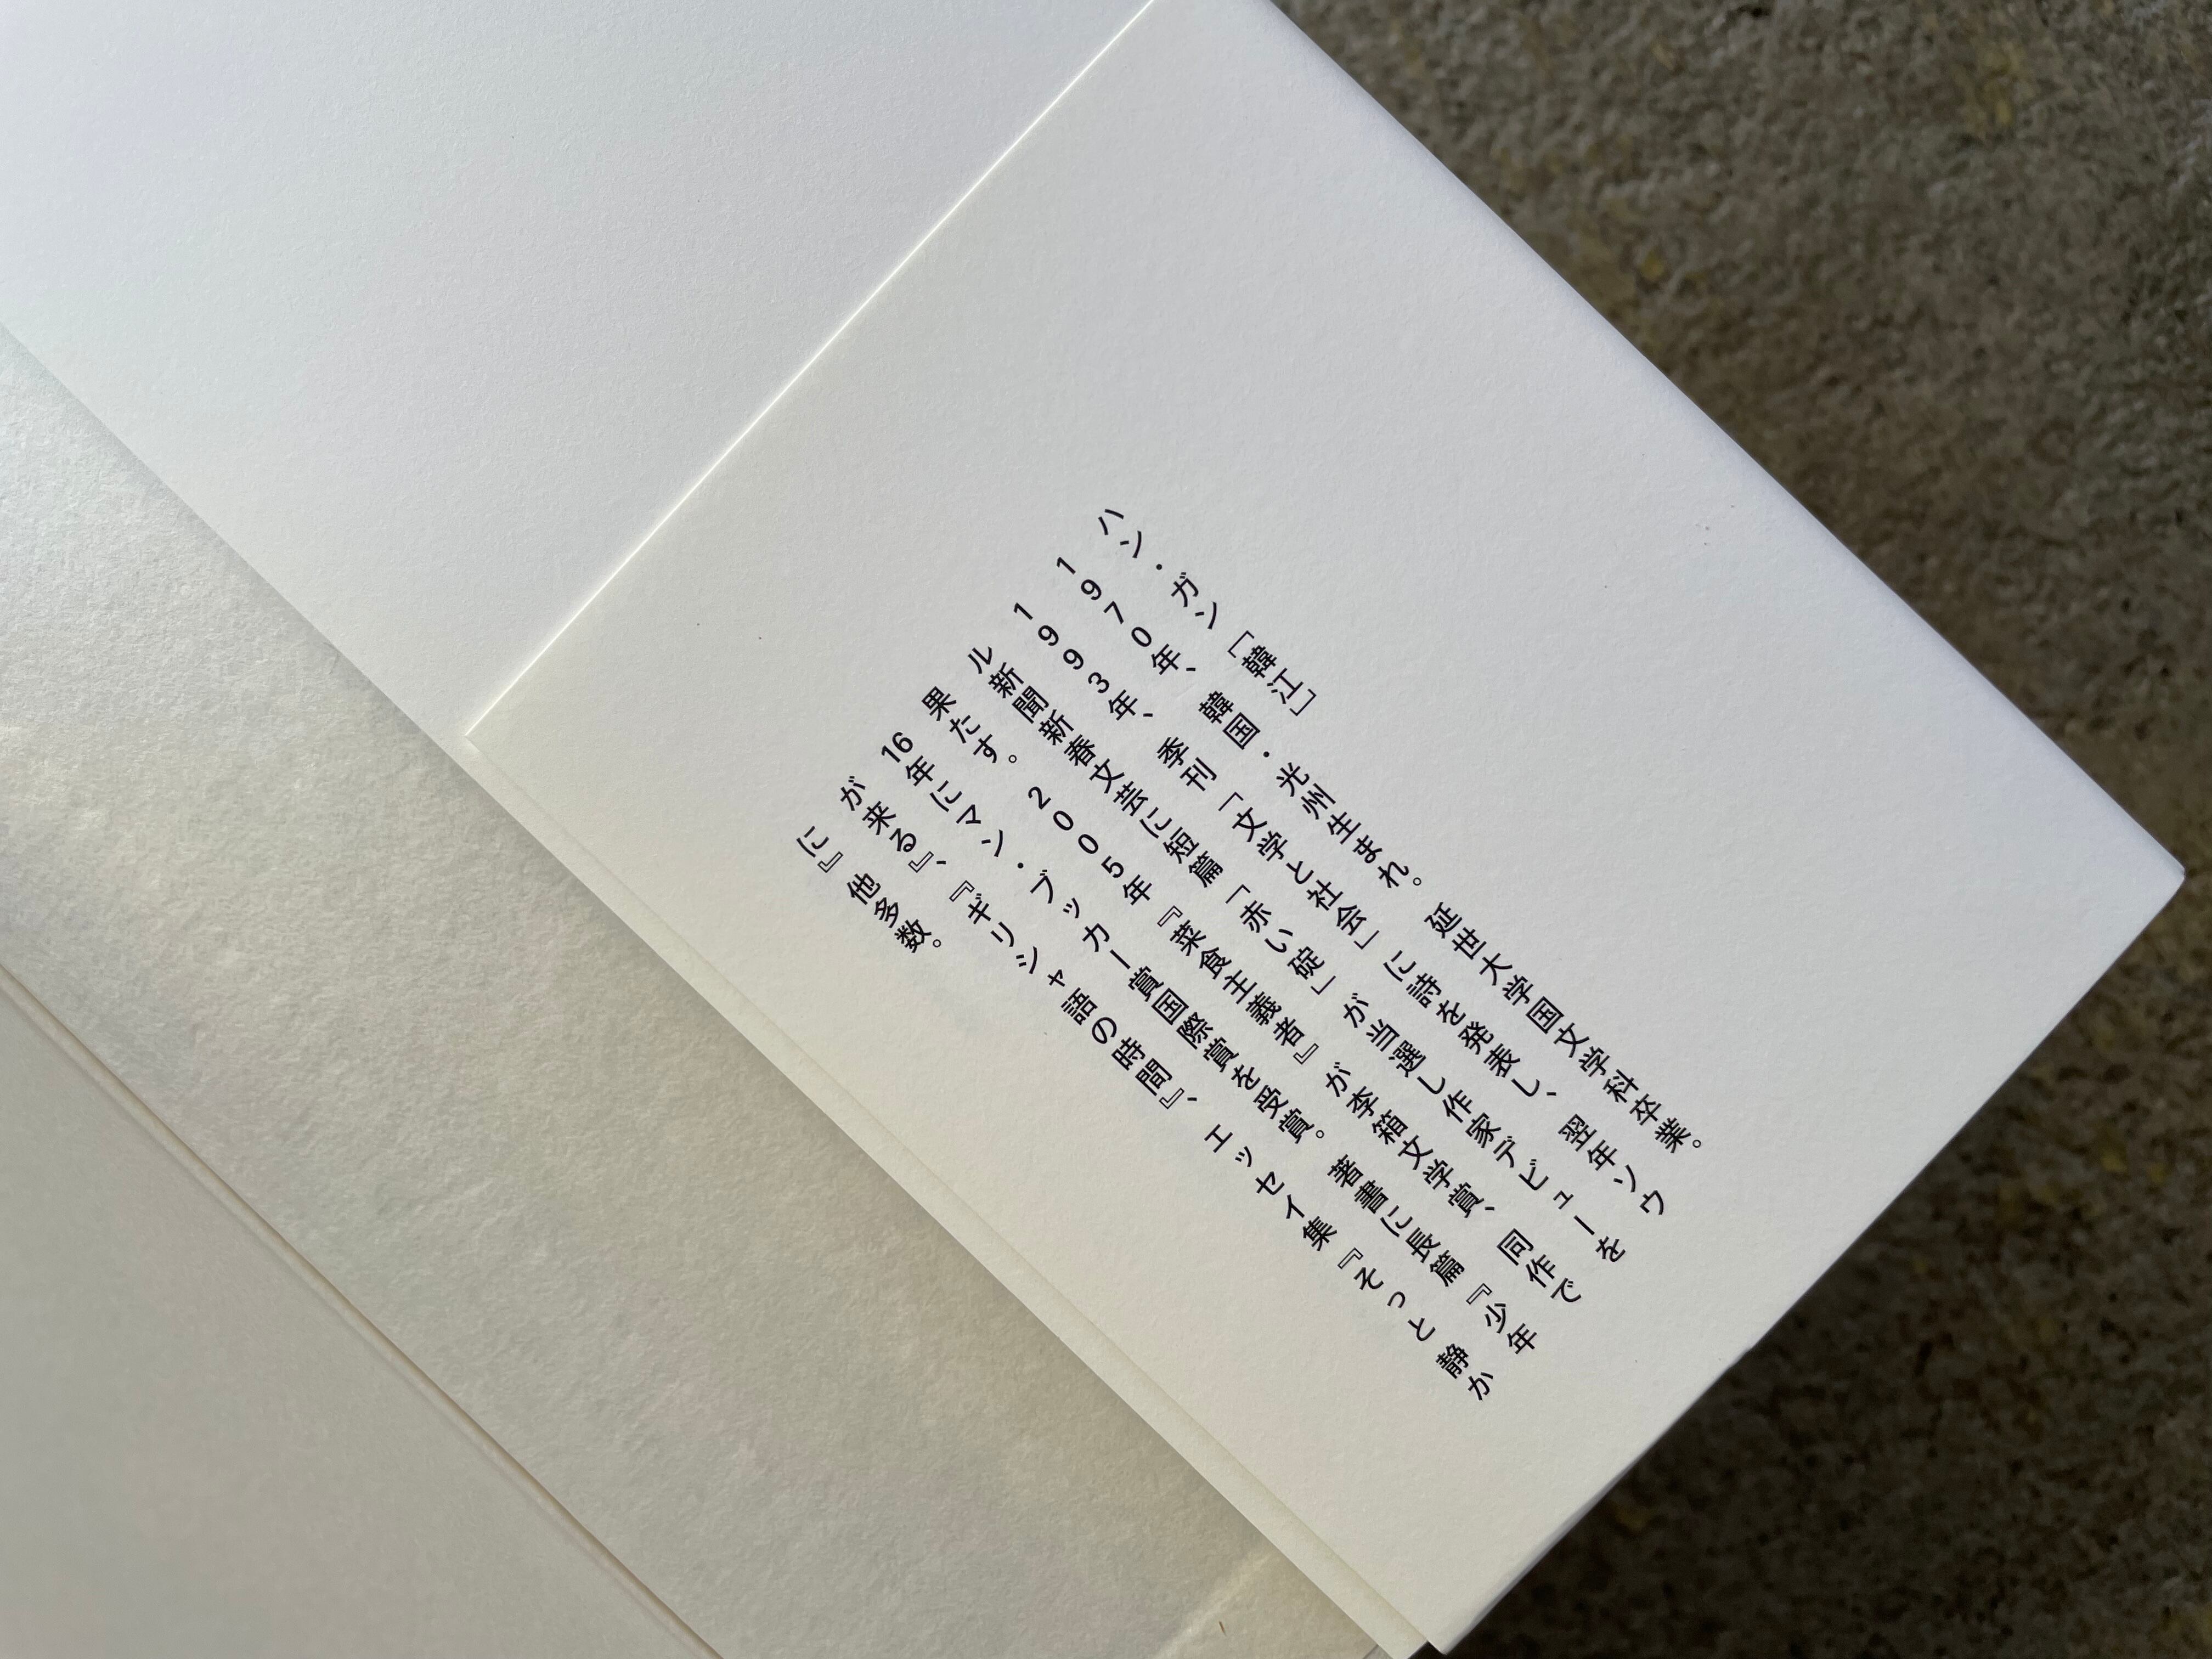 ハン・ガン［韓江］
1970年、韓国・光州生まれ。延世大学国文学科卒業。
1993年、季刊「文学と社会」に詩を発表し、翌年ソウ
ル新聞新春文芸に短篇「赤い碇」が当選し作家デビューを
果たす。2005年『菜食主義者』が李箱文学賞、同作で
16年にマン・ブッカー賞国際賞を受賞。著書に長篇『少年
が来る』、『ギリシャ語の時間』、エッセイ集『そっと静か
に』他多数。